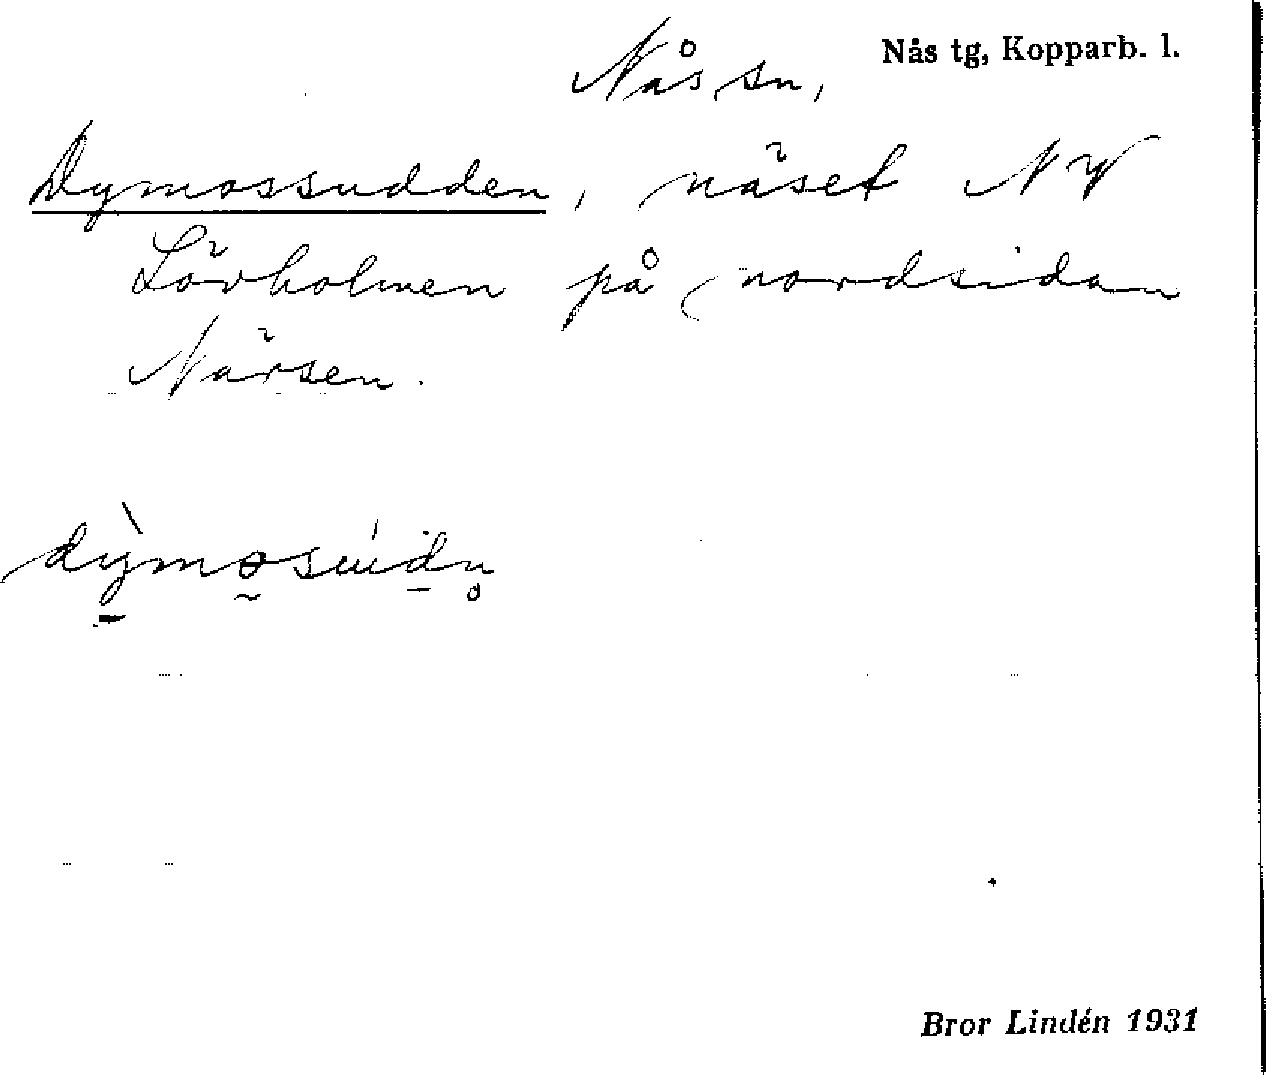 Nås tg, Kopparb. l.
Nås sn,
Dymossudden, näset NV
Lövholmen på nordsidan
Närsen.
dỳ̱mo̰súdn̥
Bror Lindén 1931